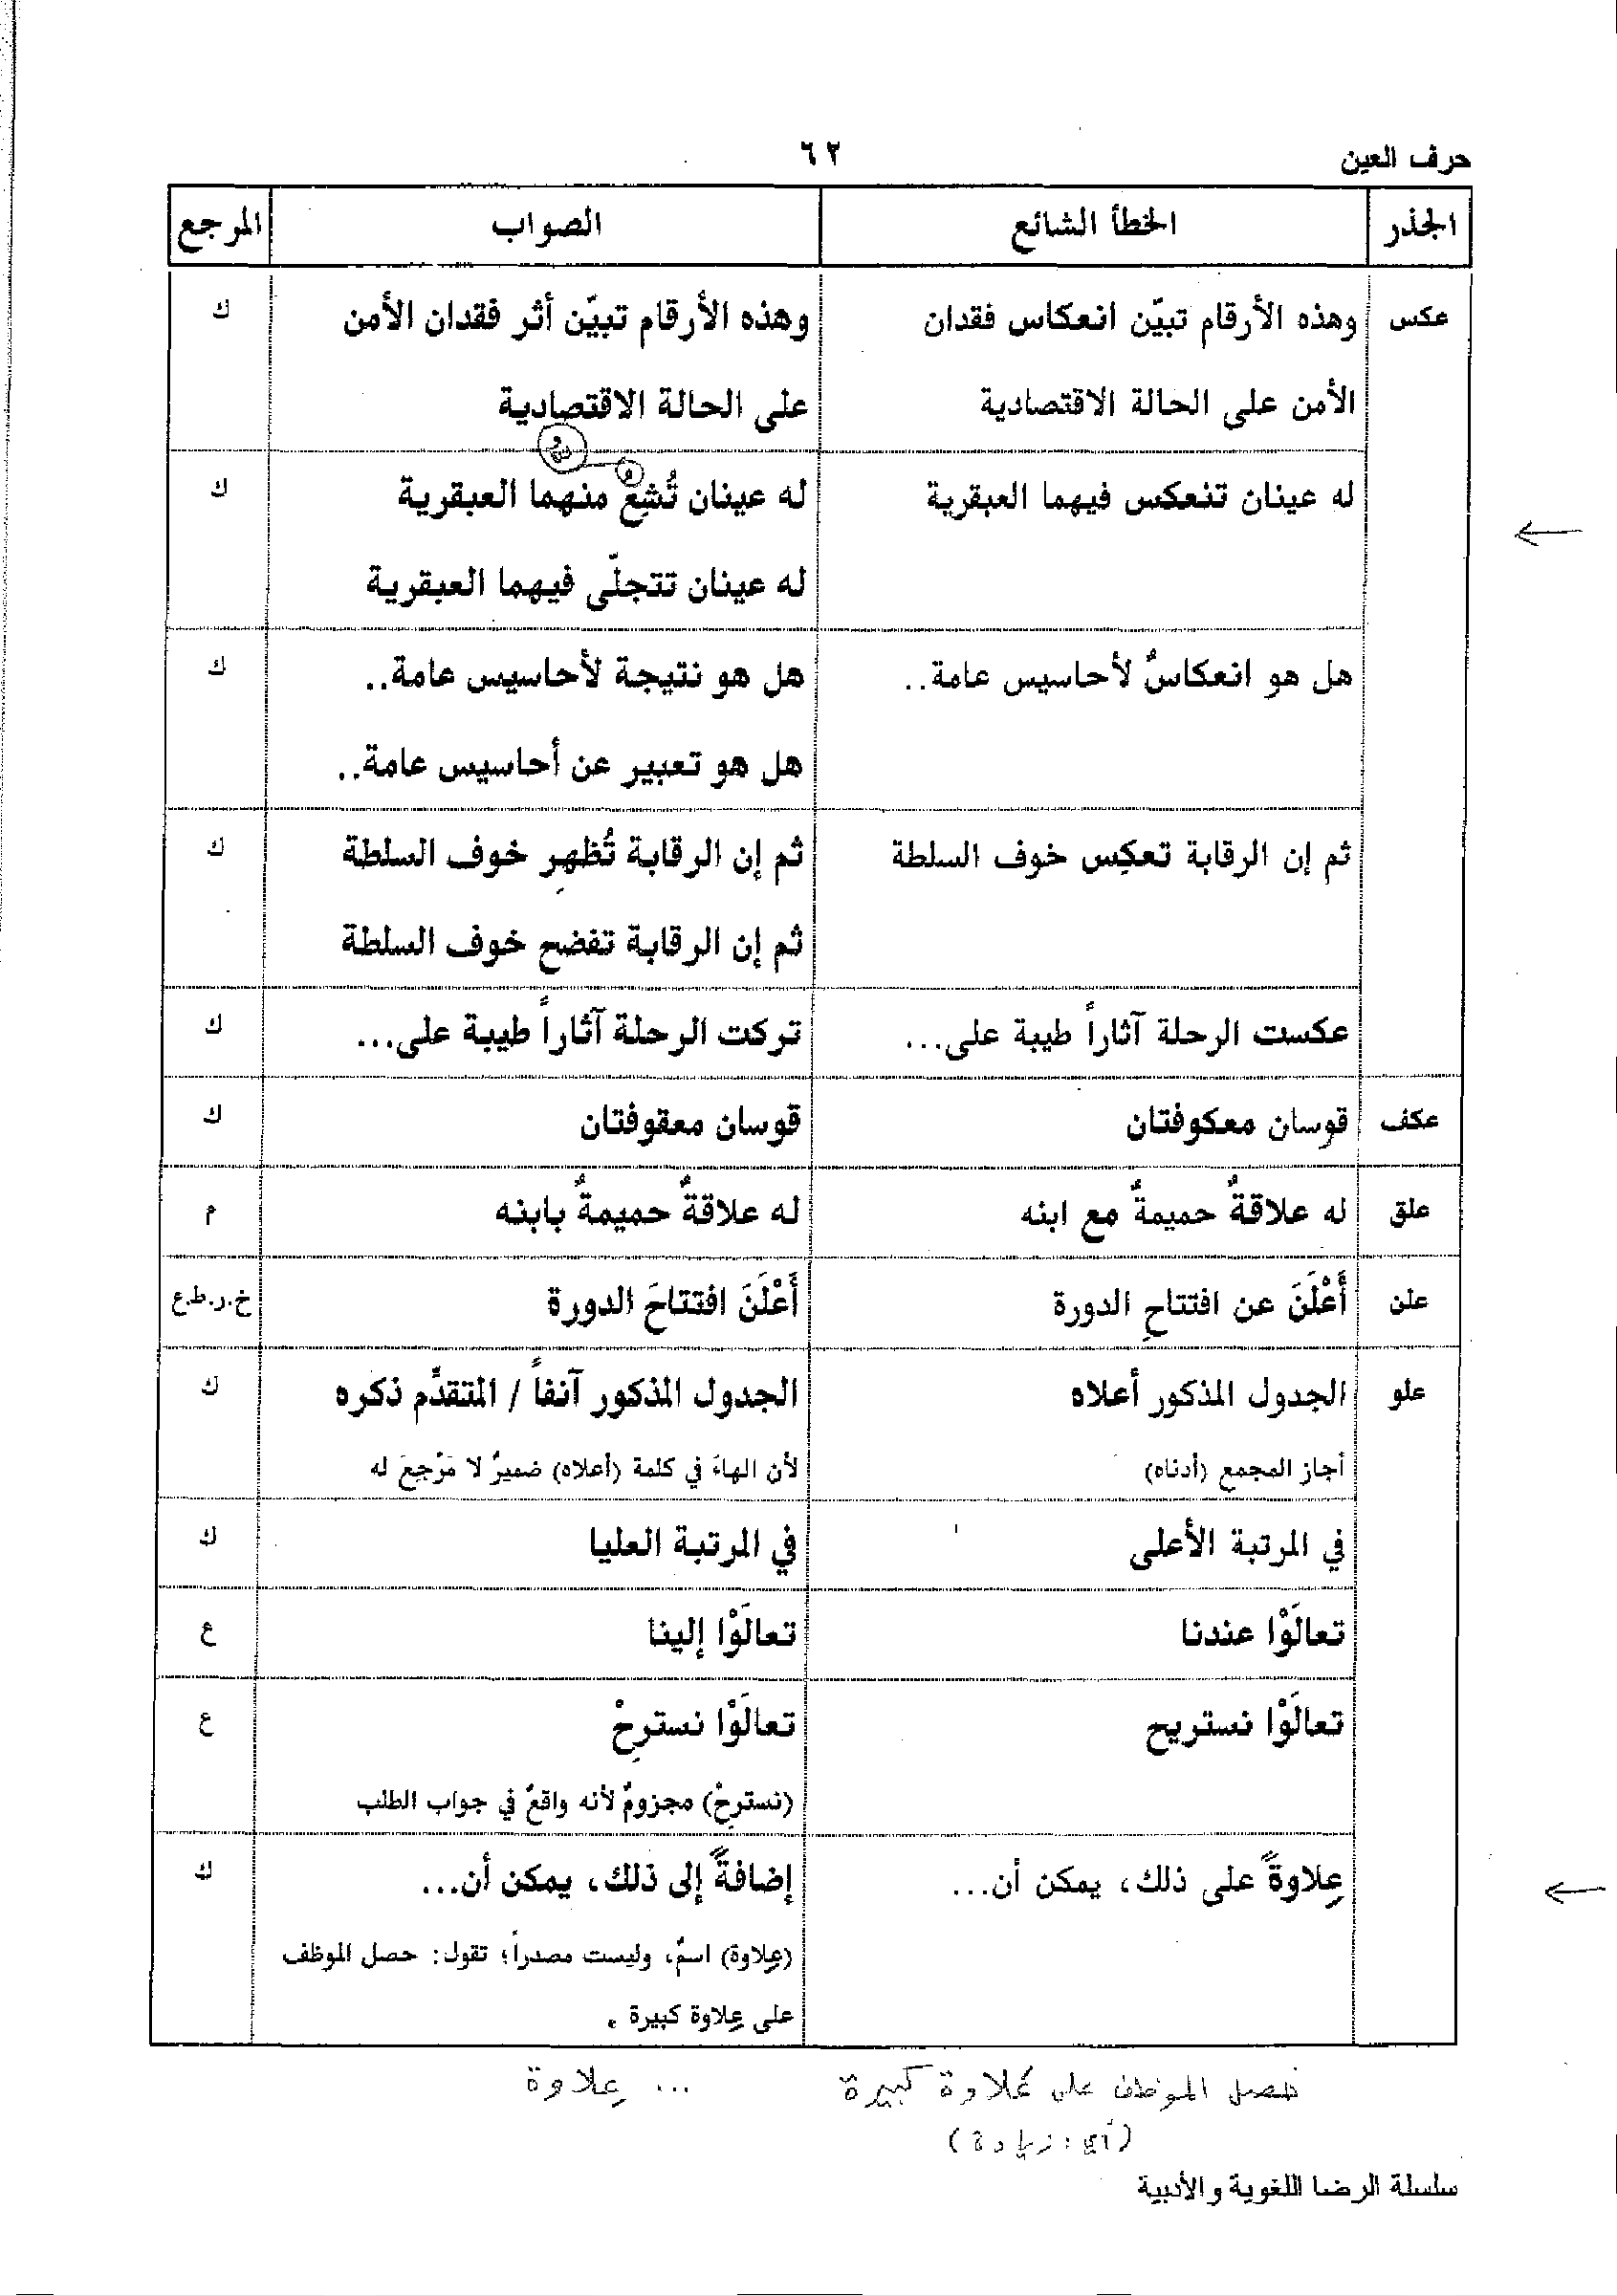 حرف العين
٦٢
الجذر الخطأ الشائع الصواب المرجع
عكس وهذه الأرقام تبيّن انعكاس فقدان وهذه الأرقام تبيّن أثر فقدان الأمن ك
الأمن على الحالة الاقتصادية على الحالة الاقتصادية
له عينان تنعكس فيهما العبقرية له عينان تُشِعّ منهما العبقرية ك
له عينان تتجلّى فيهما العبقرية
هل هو انعكاسٌ لأحاسيس عامة.. هل هو نتيجة لأحاسيس عامة.. ك
هل هو تعبير عن أحاسيس عامة..
ثم إن الرقابة تعكِس خوف السلطة ثم إن الرقابة تُظهِر خوف السلطة ك
ثم إن الرقابة تفضح خوف السلطة
عكست الرحلة آثاراً طيبة على... تركت الرحلة آثاراً طيبة على... ك
عكف قوسان معكوفتان قوسان معقوفتان ك
علق له علاقةٌ حميمةٌ مع ابنه له علاقةٌ حميمةٌ بابنه م
علن أَعْلَنَ عن افتتاحِ الدورة أَعْلَنَ افتتاحَ الدورة خ.ر.ط.ع
علو الجدول المذكور أعلاه الجدول المذكور آنفاً / المتقدِّم ذكره ك
أجاز المجمع (أدناه) لأن الهاءَ في كلمة (أعلاه) ضميرٌ لا مَرْجِعَ له
في المرتبة الأعلى في المرتبة العليا ك
تعالَوْا عندنا تعالَوْا إلينا ع
تعالَوْا نستريح تعالَوْا نسترِحْ ع
(نسترِحْ) مجزومٌ لأنه واقعٌ في جواب الطلب
عِلاوةً على ذلك، يمكن أن... إضافةً إلى ذلك، يمكن أن... ك
(عِلاوة) اسمٌ، وليست مصدراً؛ تقول: حصل الموظف
على عِلاوة كبيرة .
حصل الموظف على علاوة كبيرة ... عِلاوة
(أي: زيادة)
سلسلة الرضا اللغوية والأدبية